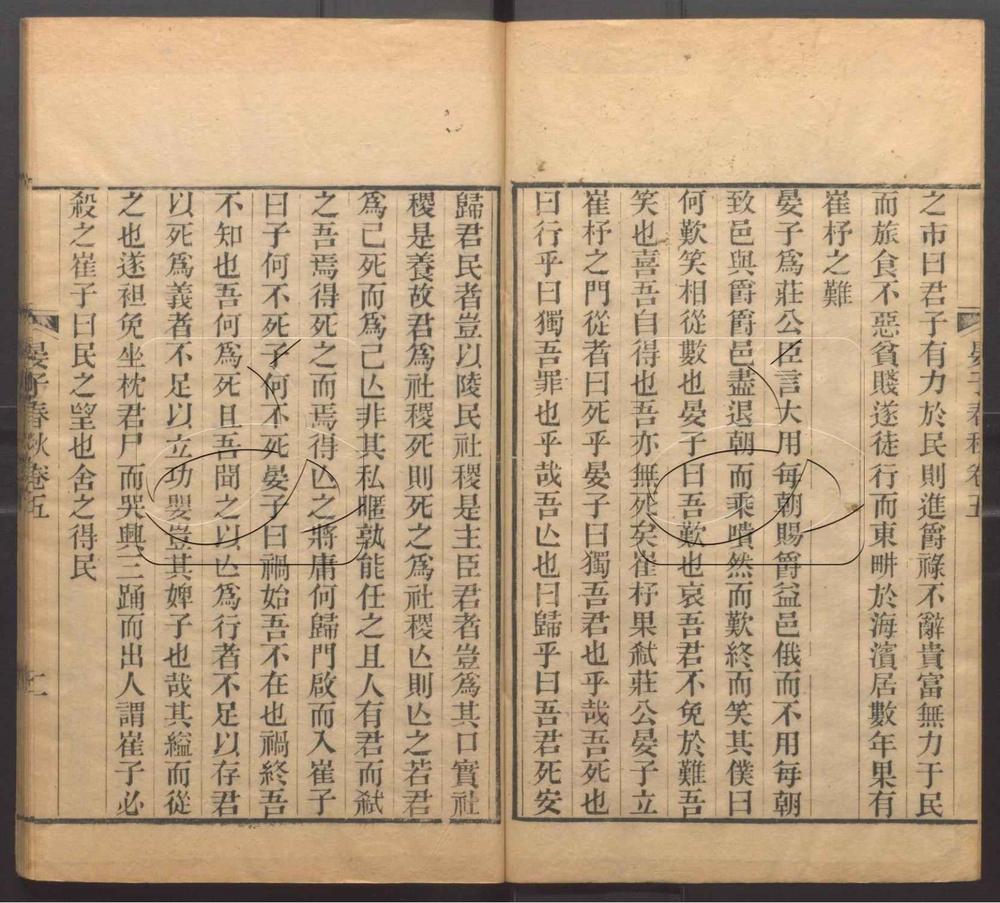 之市曰君子有力於民則進爵祿不辭貴富無力于民
而旅食不惡貧賤遂徒行而東畊於海濱居數年果有
崔杼之難
晏子爲莊公臣言大用每朝賜爵益邑俄而不用每朝
致邑與爵爵邑盡退朝而乘嘳然而歎終而笑其僕曰
何歎笑相從數也晏子曰吾歎也哀吾君不免於難吾
笑也喜吾自得也吾亦無死矣崔杼果弒莊公晏子立
崔杼之門從者曰死乎晏子曰獨吾君也乎哉吾死也
曰行乎曰獨吾罪也乎哉吾亾也曰歸乎曰吾君死安
晏子春秋卷五
歸君民者豈以陵民社稷是主臣君者豈爲其口實社
稷是養故君爲社稷死則死之爲社稷亾則亾之若君
爲己死而爲己亾非其私暱孰能任之且人有君而弒
之吾焉得死之而焉得亾之將庸何歸門啟而入崔子
曰子何不死子何不死晏子曰禍始吾不在也禍終吾
不知也吾何爲死且吾聞之以亾爲行者不足以存君
以死爲義者不足以立功嬰豈其婢子也哉其縊而從
之也遂袒免坐枕君尸而哭興三踊而出人謂崔子必
殺之崔子曰民之望也舍之得民
晏子春秋卷五 二